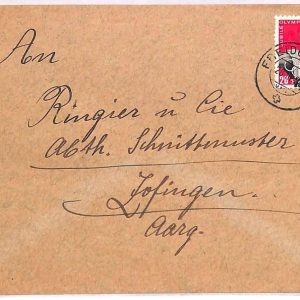 OLYMP
20
An
Ringier u Cie
Abth. Schnittmuster
Zofingen.
Aarg.